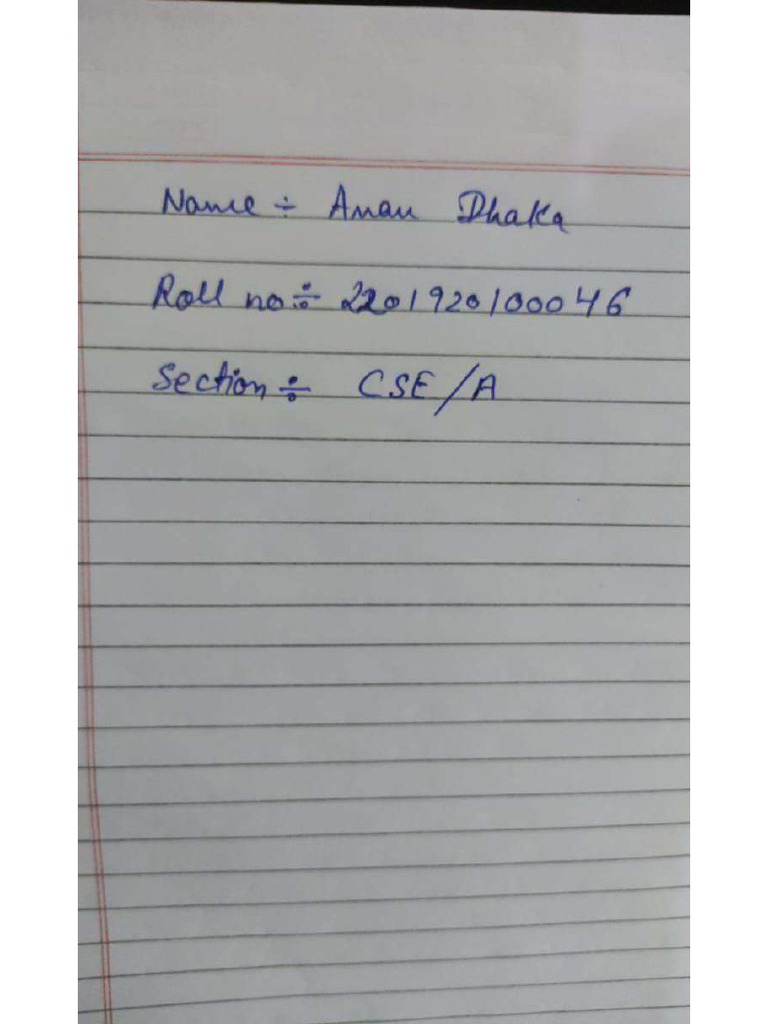 Name ÷ Aman Dhaka
Roll no ÷ 2201920100046
Section ÷ CSE/A